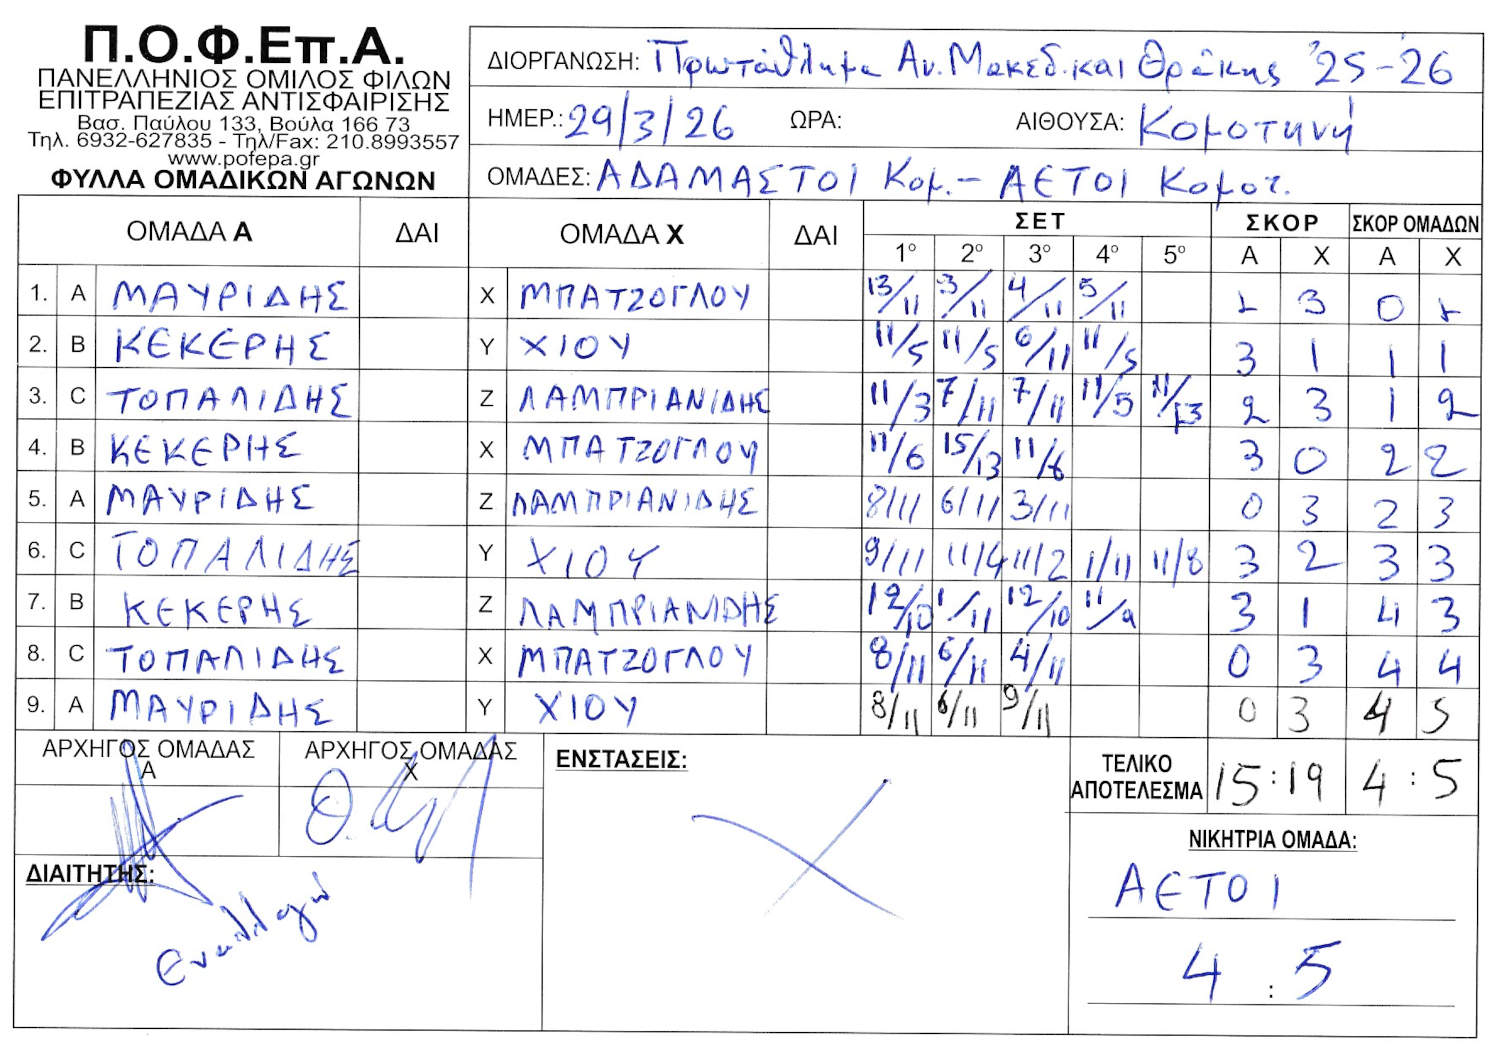 Π.Ο.Φ.Επ.Α.
ΠΑΝΕΛΛΗΝΙΟΣ ΟΜΙΛΟΣ ΦΙΛΩΝ
ΕΠΙΤΡΑΠΕΖΙΑΣ ΑΝΤΙΣΦΑΙΡΙΣΗΣ
Βασ. Παύλου 133, Βούλα 166 73
Τηλ. 6932-627835 - Τηλ/Fax: 210.8993557
www.pofepa.gr
ΦΥΛΛΑ ΟΜΑΔΙΚΩΝ ΑΓΩΝΩΝ
ΔΙΟΡΓΑΝΩΣΗ: Πρωτάθλημα Αν. Μακεδ. και Θράκης '25-26
ΗΜΕΡ.: 29/3/26 ΩΡΑ: ΑΙΘΟΥΣΑ: Κομοτηνή
ΟΜΑΔΕΣ: ΑΔΑΜΑΣΤΟΙ Κομ. - ΑΕΤΟΙ Κομοτ.
ΟΜΑΔΑ Α ΔΑΙ ΟΜΑΔΑ Χ ΔΑΙ ΣΕΤ ΣΚΟΡ ΣΚΟΡ ΟΜΑΔΩΝ
1° 2° 3° 4° 5° Α Χ Α Χ
1. A ΜΑΥΡΙΔΗΣ X ΜΠΑΤΖΟΓΛΟΥ 13/11 3/11 4/11 5/11 1 3 0 1
2. B ΚΕΚΕΡΗΣ Y ΧΙΟΥ 11/5 11/5 6/11 11/5 3 1 1 1
3. C ΤΟΠΑΛΙΔΗΣ Z ΛΑΜΠΡΙΑΝΙΔΗΣ 11/3 7/11 7/11 11/5 11/13 2 3 1 2
4. B ΚΕΚΕΡΗΣ X ΜΠΑΤΖΟΓΛΟΥ 11/6 15/13 11/6 3 0 2 2
5. A ΜΑΥΡΙΔΗΣ Z ΛΑΜΠΡΙΑΝΙΔΗΣ 8/11 6/11 3/11 0 3 2 3
6. C ΤΟΠΑΛΙΔΗΣ Y ΧΙΟΥ 9/11 11/4 11/2 1/11 11/8 3 2 3 3
7. B ΚΕΚΕΡΗΣ Z ΛΑΜΠΡΙΑΝΙΔΗΣ 12/10 1/11 12/10 11/9 3 1 4 3
8. C ΤΟΠΑΛΙΔΗΣ X ΜΠΑΤΖΟΓΛΟΥ 8/11 6/11 4/11 0 3 4 4
9. A ΜΑΥΡΙΔΗΣ Y ΧΙΟΥ 8/11 6/11 9/11 0 3 4 5
ΑΡΧΗΓΟΣ ΟΜΑΔΑΣ Α
ΑΡΧΗΓΟΣ ΟΜΑΔΑΣ Χ
ΕΝΣΤΑΣΕΙΣ:
ΤΕΛΙΚΟ ΑΠΟΤΕΛΕΣΜΑ 15:19 4:5
ΔΙΑΙΤΗΤΗΣ:
Εναλλαγών
ΝΙΚΗΤΡΙΑ ΟΜΑΔΑ:
ΑΕΤΟΙ
4 : 5